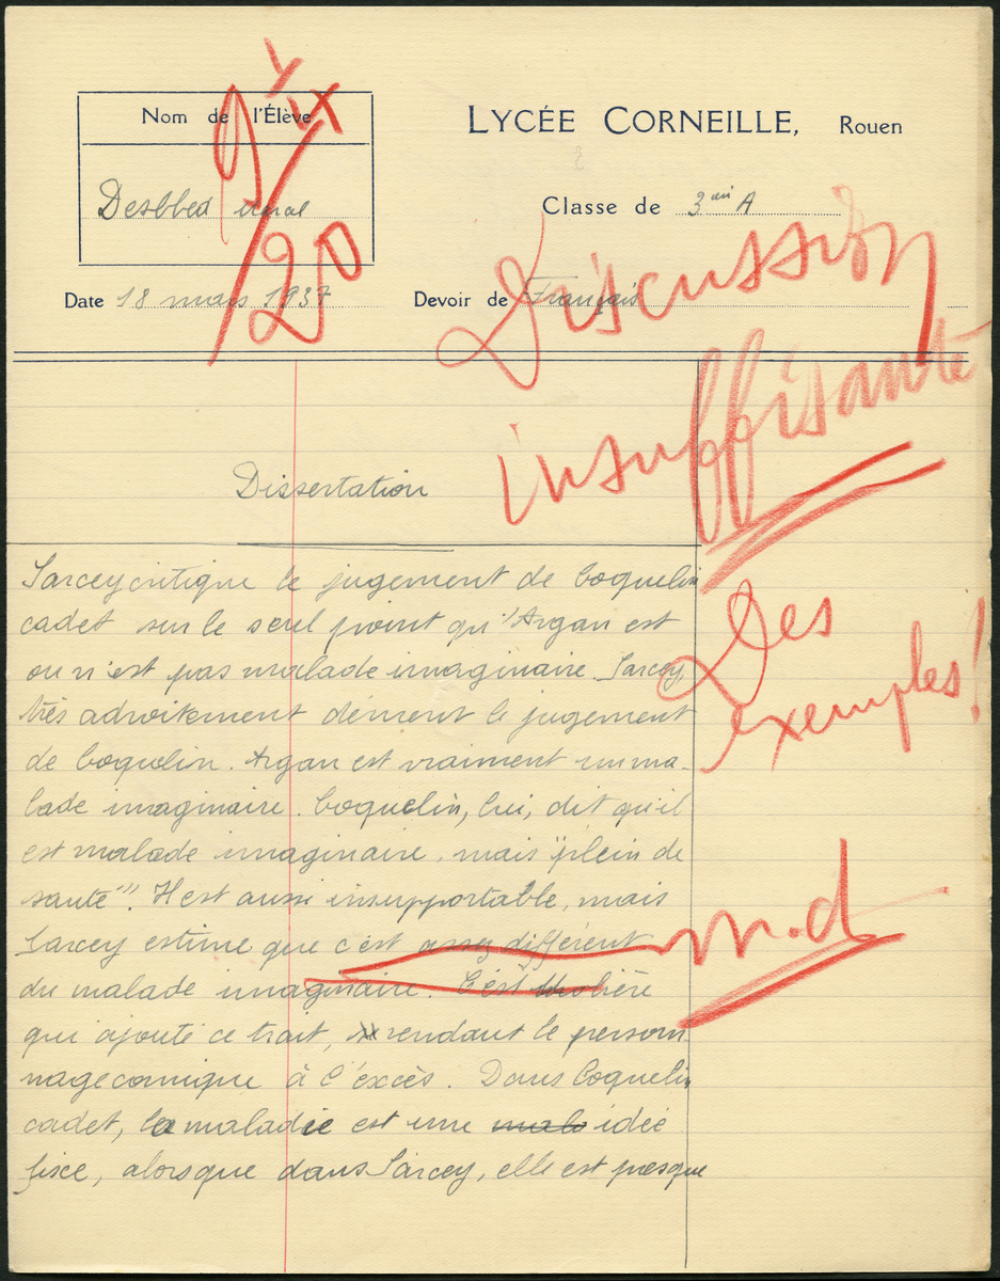 Nom de l'Élève
9 1/2
20
LYCÉE CORNEILLE, Rouen
Classe de 3ème A
Date 18 mars 1937
Devoir de Français
Discussion
insuffisante
Dissertation
Des
exemples!
Sarcey critique le jugement de Coquelin
cadet sur le seul point qu'Argan est
ou n'est pas malade imaginaire. Sarcey,
très adroitement dément le jugement
de Coquelin. Argan est vraiment un ma-
lade imaginaire. Coquelin, lui, dit qu'il
est malade imaginaire, mais "plein de
santé". Il est aussi insupportable, mais
Sarcey estime que c'est assez différent
m.d
du malade imaginaire. C'est Molière
qui ajoute ce trait, rendant le person
nage comique à l'excès. Dans Coquelin
cadet, la maladie est une malo idée
fixe, alors que dans Sarcey, elle est presque